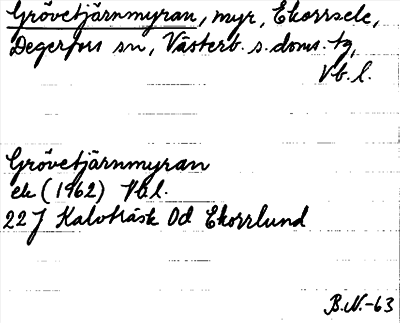 Grövetjärnmyran, myr, Ekorrsele,
Degerfors sn, Västerb. s. doms. tg,
Vb. l.
Grövetjärnmyran
ek (1962) Vb l.
22 J Kalvträsk Od Ekorrlund
B.N.-63